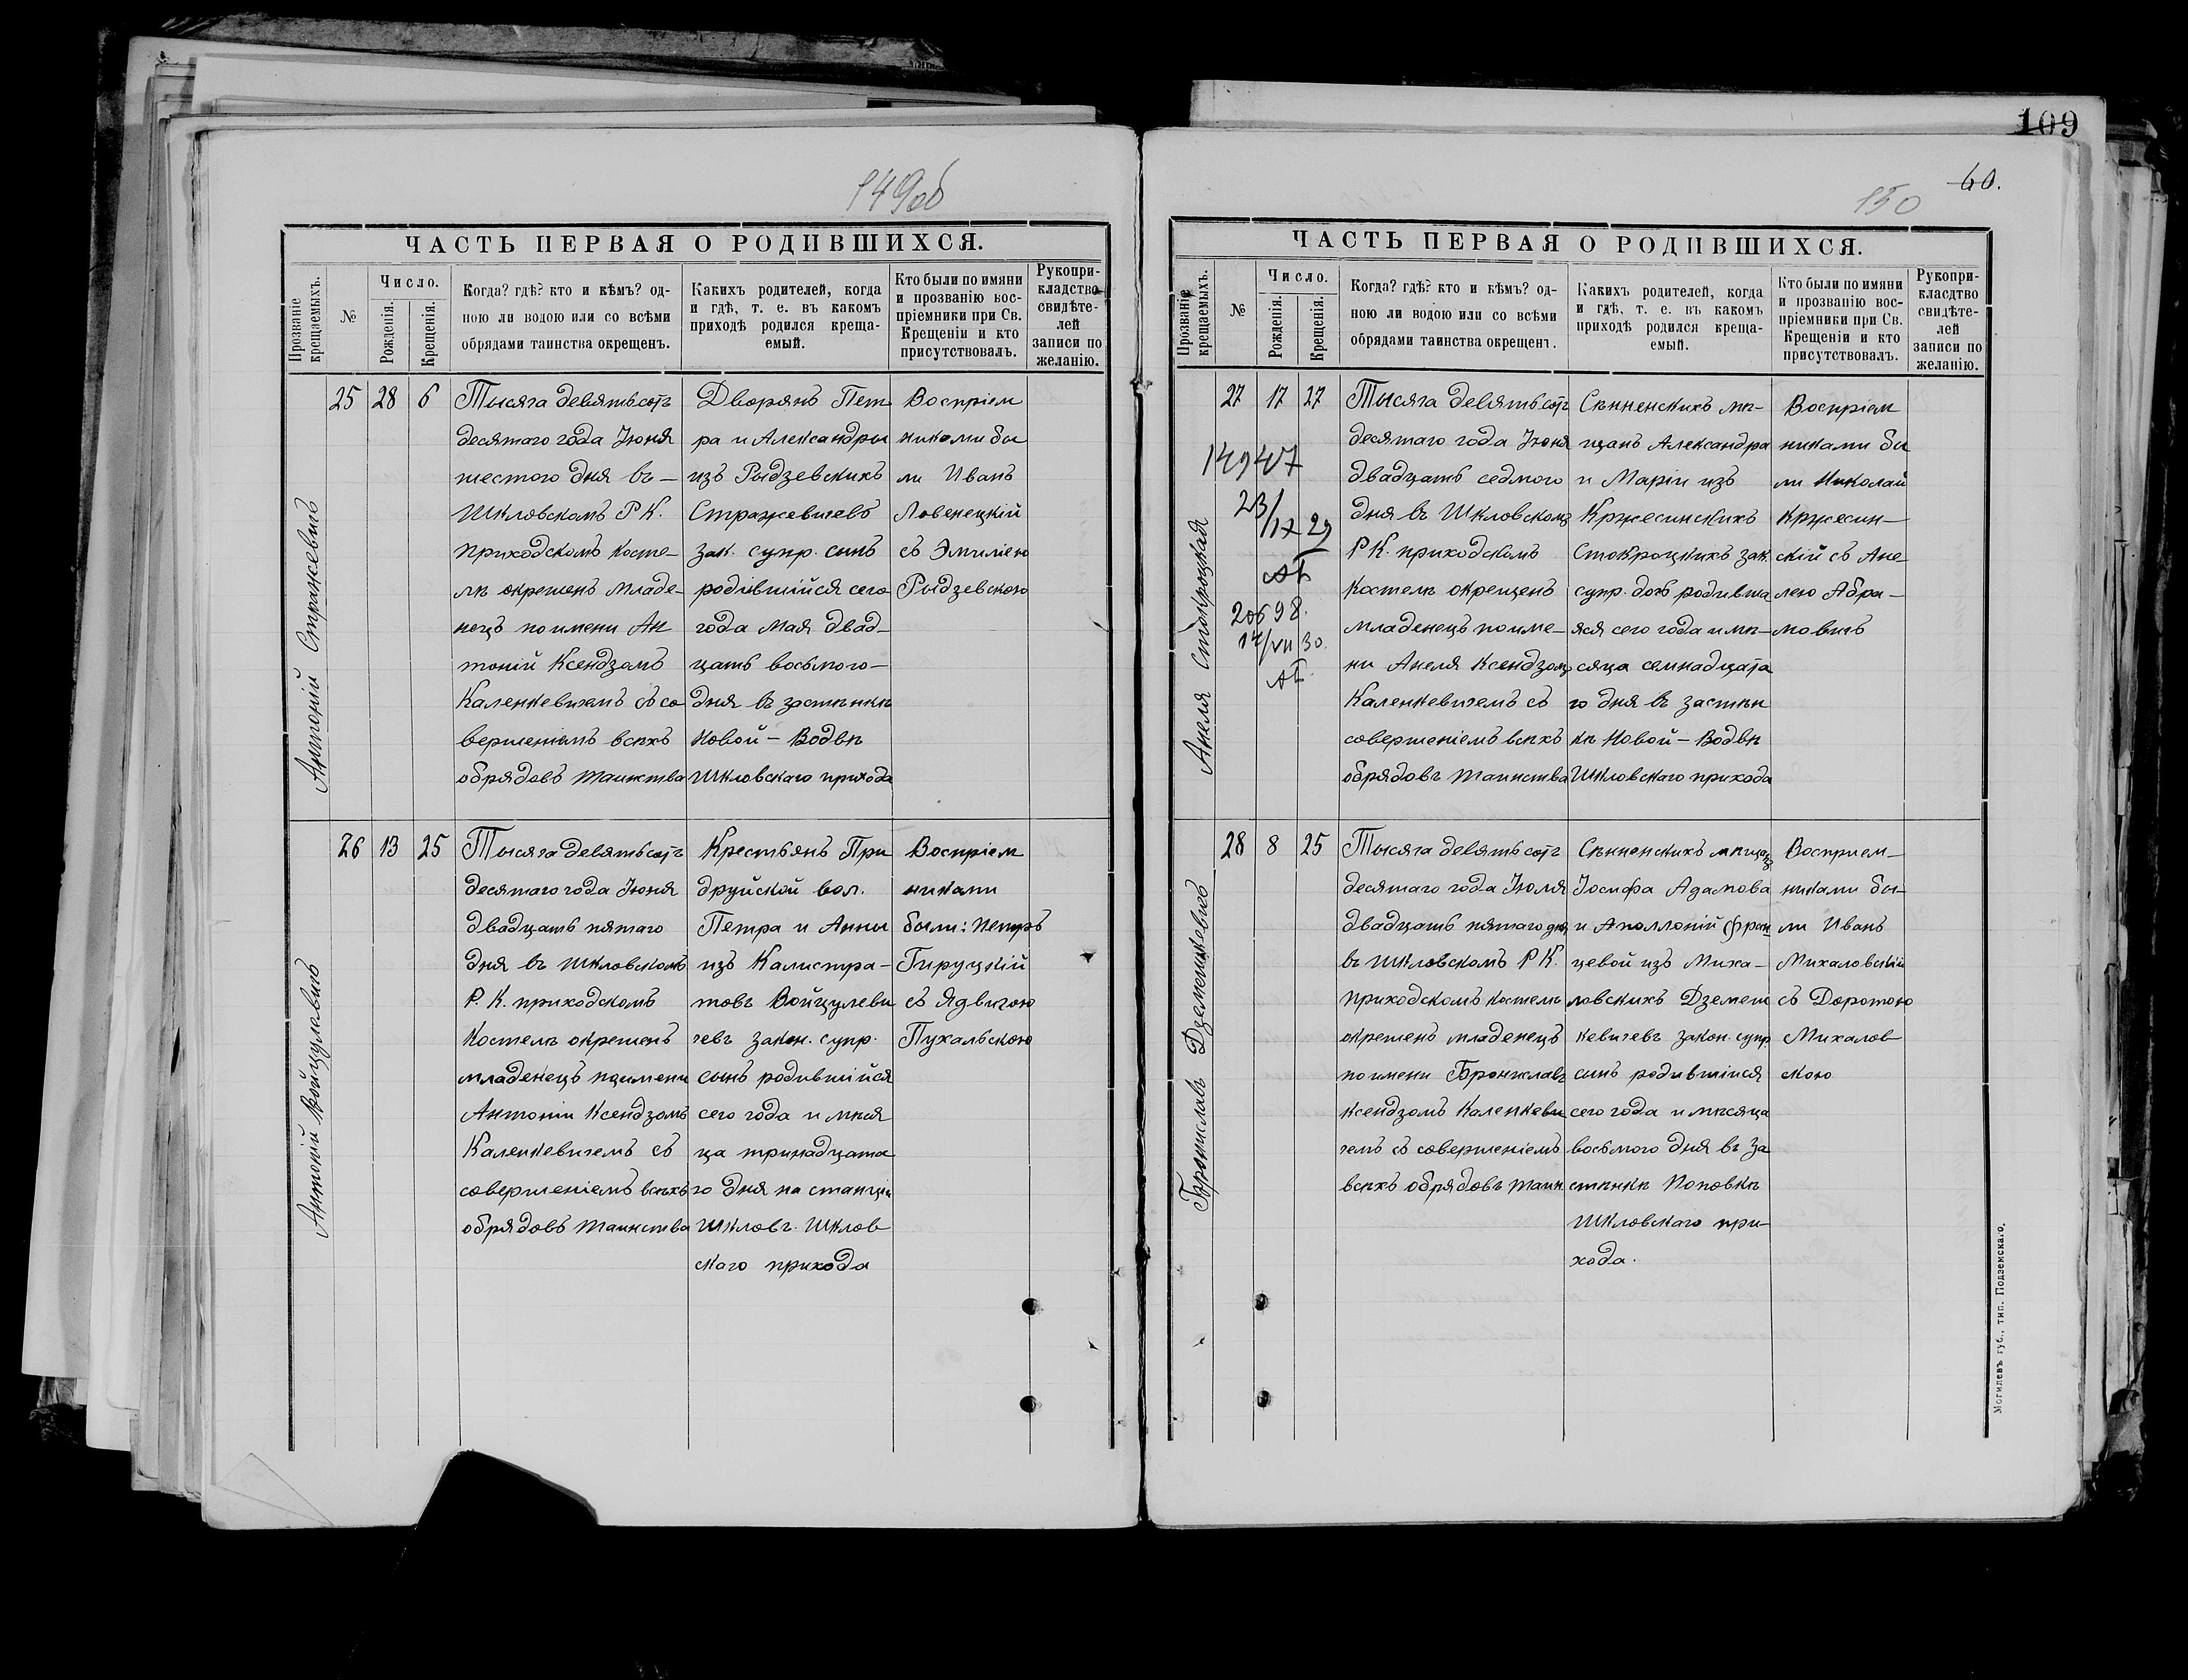 149об
ЧАСТЬ ПЕРВАЯ О РОДИВШИХСЯ.
Прозваніе крещаемыхъ.
№
Число.
Рожденія.
Крещенія.
Когда? гдѣ? кто и кѣмъ? од-
ною ли водою или со всѣми
обрядами таинства окрещенъ.
Какихъ родителей, когда
и гдѣ, т. е. въ какомъ
приходѣ родился креща-
емый.
Кто были по имяни
и прозванію вос-
пріемники при Св.
Крещеніи и кто
присутствовалъ.
Рукопри-
кладство
свидѣте-
лей
записи по
желанію.
Антоній Стражевичъ
25
28
6
Тысяча девятьсотъ
десятаго года Іюня
шестого дня въ —
Шкловскомъ Р К.
приходскомъ косте-
лѣ окрещенъ младе-
нецъ по имени Ан
тоній Ксендзомъ
Каленкевичемъ съ со
вершеніемъ всѣхъ
обрядовъ таинства
Дворянъ Пет
ра и Александры
изъ Рыдзевскихъ
Стражевичевъ
зак. супр. сынъ
родившійся сего
года Мая двад-
цать восьмого-
дня въ застѣнкѣ
Новой - Водвѣ
Шкловскаго прихода
Воспріем
никами бы
ли Иванъ
Ловенецкій
съ Эмиліею
Рыдзевскою
Антоній Войцулевичъ
26
13
25
Тысяча девятьсотъ
десятаго года Іюня
двадцать пятаго
дня въ Шкловскомъ
Р. К. приходскомъ
костелѣ окрещенъ
младенецъ по имени
Антоній Ксендзомъ
Каленкевичемъ съ
совершеніемъ всѣхъ
обрядовъ таинства
Крестьянъ При
друйской вол.
Петра и Анны
изъ Калистра-
товъ Войцулеви
чевъ закон. супр.
сынъ родившійся
сего года и мѣся
ца тринадцата
го дня на станціи
Шкловъ. Шклов
скаго прихода
Воспріем
никами
были: Петръ
Гируцкій
съ Ядвигою
Пухальскою
109
60.
150
ЧАСТЬ ПЕРВАЯ О РОДИВШИХСЯ.
Прозваніе крещаемыхъ.
№
Число.
Рожденія.
Крещенія.
Когда? гдѣ? кто и кѣмъ? од-
ною ли водою или со всѣми
обрядами таинства окрещенъ.
Какихъ родителей, когда
и гдѣ, т. е. въ какомъ
приходѣ родился креща-
емый.
Кто были по имяни
и прозванію вос-
пріемники при Св.
Крещеніи и кто
присутствовалъ.
Рукопри-
класдтво
свидѣте-
лей
записи по
желанію.
Анеля Стокроцкая
27
17
27
20698.
17/VII 30.
Тысяча девятьсотъ
десятаго года Іюня
двадцать седмого
дня въ Шкловскомъ
Р К. приходскомъ
костелѣ окрещенъ
младенецъ по име-
ни Анеля Ксендзомъ
Каленкевичемъ съ
совершеніемъ всѣхъ
обрядовъ таинства
Сѣнненскихъ мѣ-
щанъ Александра
и Маріи изъ
Кржесинскихъ
Стокроцкихъ зак.
супр. дочь родивша
яся сего года и мѣ-
сяца семнадцата
го дня въ застѣн
кѣ Новой - Водвѣ
Шкловскаго прихода
Воспріем
никами бы
ли Николай
Кржесин-
скій съ Ане-
лею Абра-
мовичъ
Брониславъ Дземешкевичъ
28
8
25
Тысяча девятьсотъ
десятаго года Іюля
двадцать пятаго дня
въ Шкловскомъ Р К.
приходскомъ костелѣ
окрещенъ младенецъ
по имени Брониславъ
ксендзомъ Каленкеви
чемъ съ совершеніемъ
всѣхъ обрядовъ таин.
Сѣнненскихъ мѣщанъ
Іосифа Адамова
и Аполлоній Фран-
цевой изъ Миха-
ловскихъ Дземеш
кевичевъ закон. супр.
сынъ родившійся
сего года и мѣсяца
восьмого дня въ за
стѣнкѣ Поповкѣ
Шкловскаго при-
хода.
Восприем-
никами бы-
ли Иванъ
Михаловскій
съ Доротою
Михалов
скою
Могилевъ губ., тип. Подземскаго.